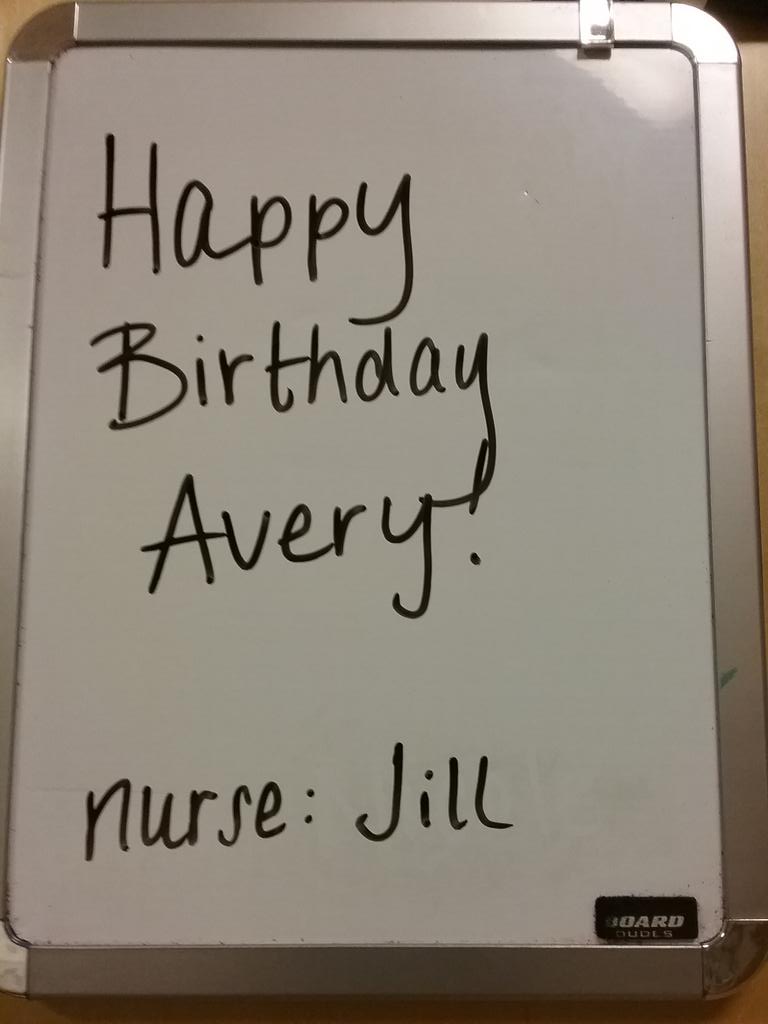 Happy
Birthday
Avery!
nurse: Jill
BOARD
DUDES